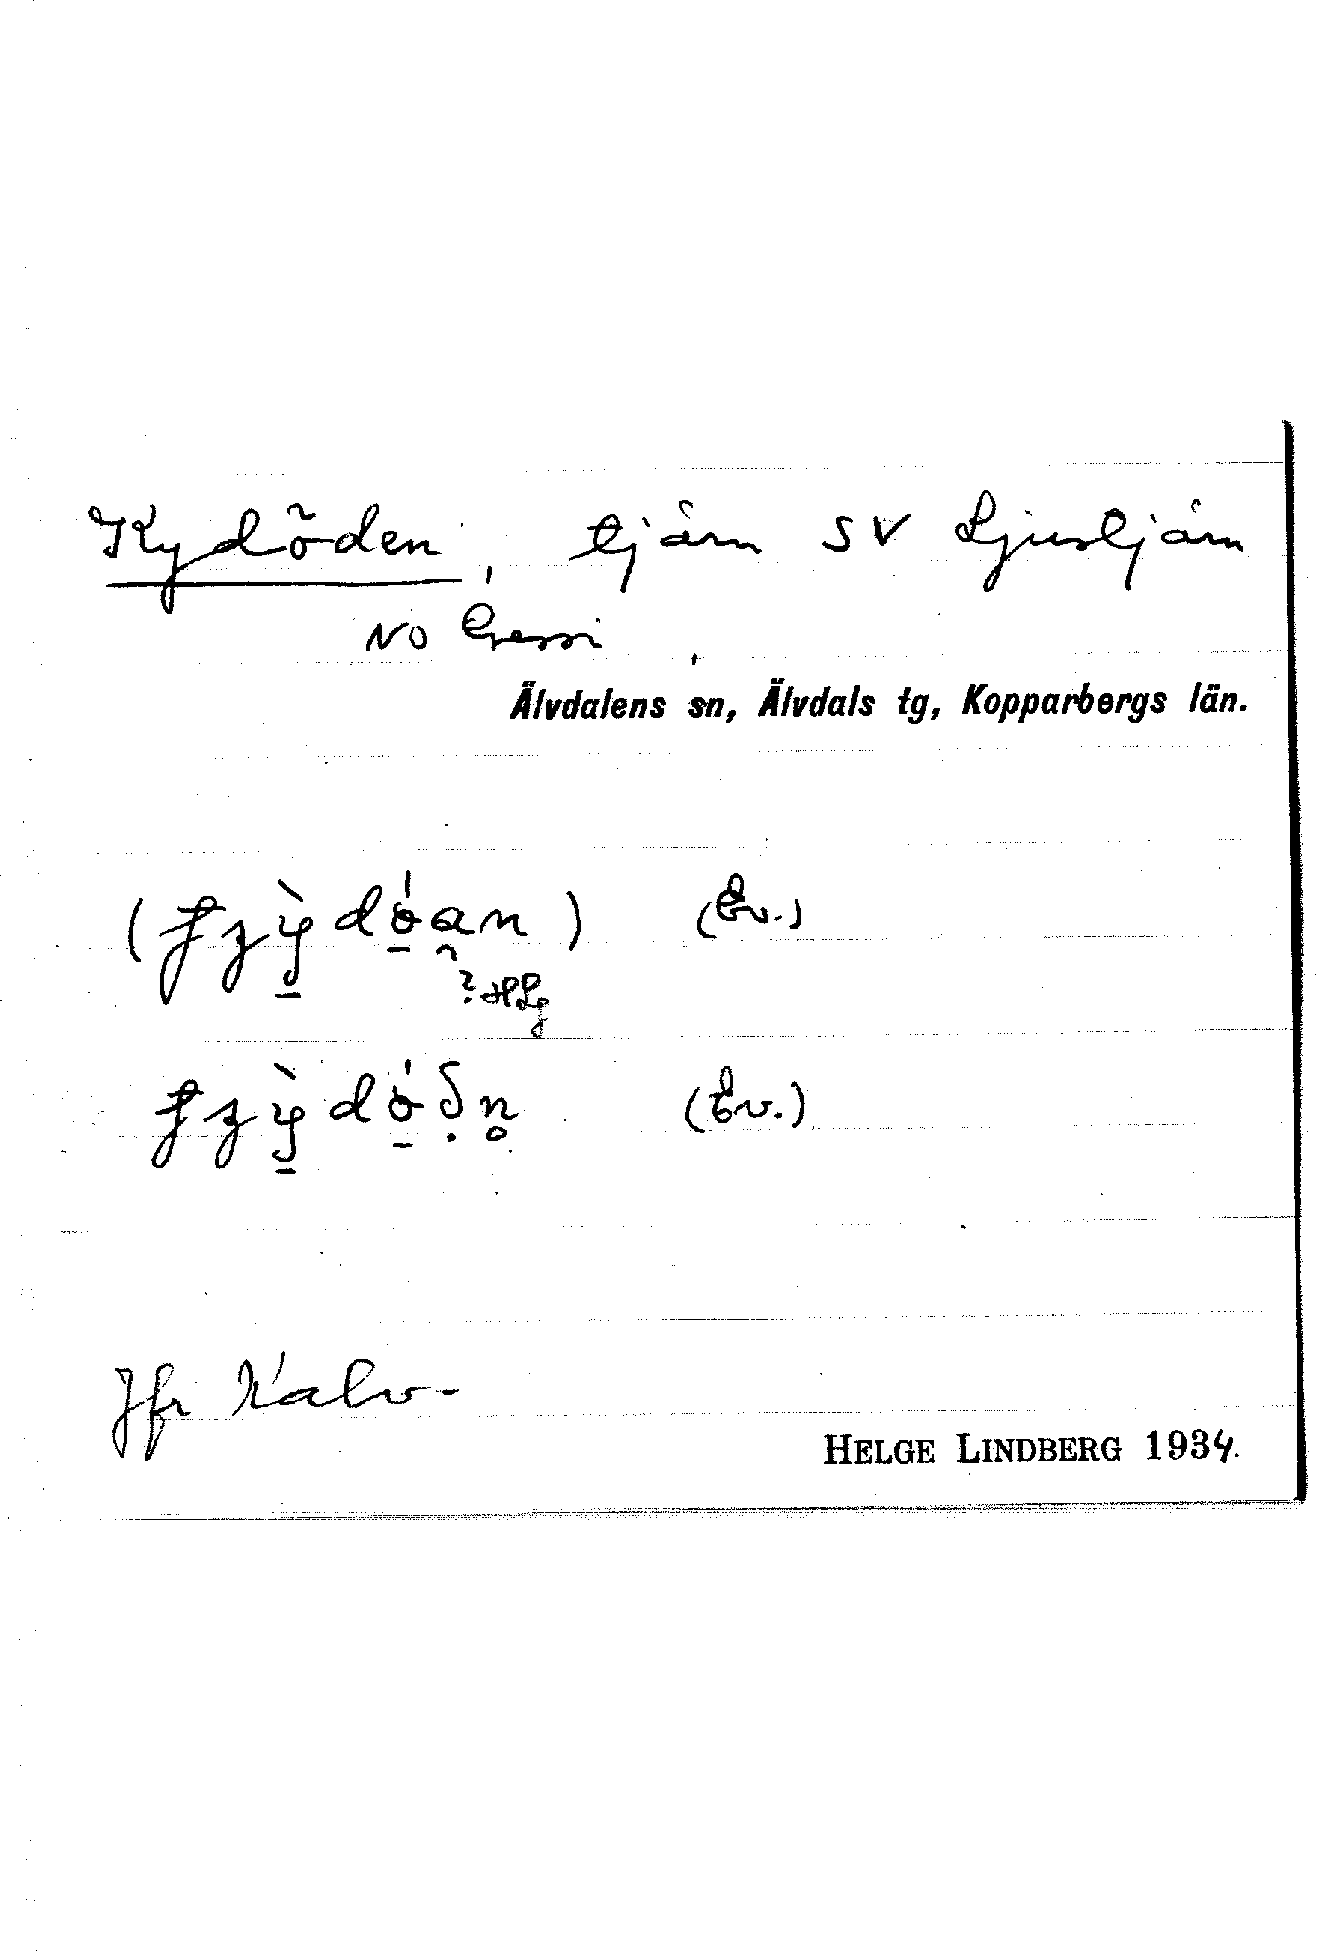 Kydöden, tjärn SV Ljustjärn
NO Gressi
Älvdalens sn, Älvdals tg, Kopparbergs län.
(Ev.)
? HLg
(Ev.)
Jfr Kalv-
HELGE LINDBERG 1934.